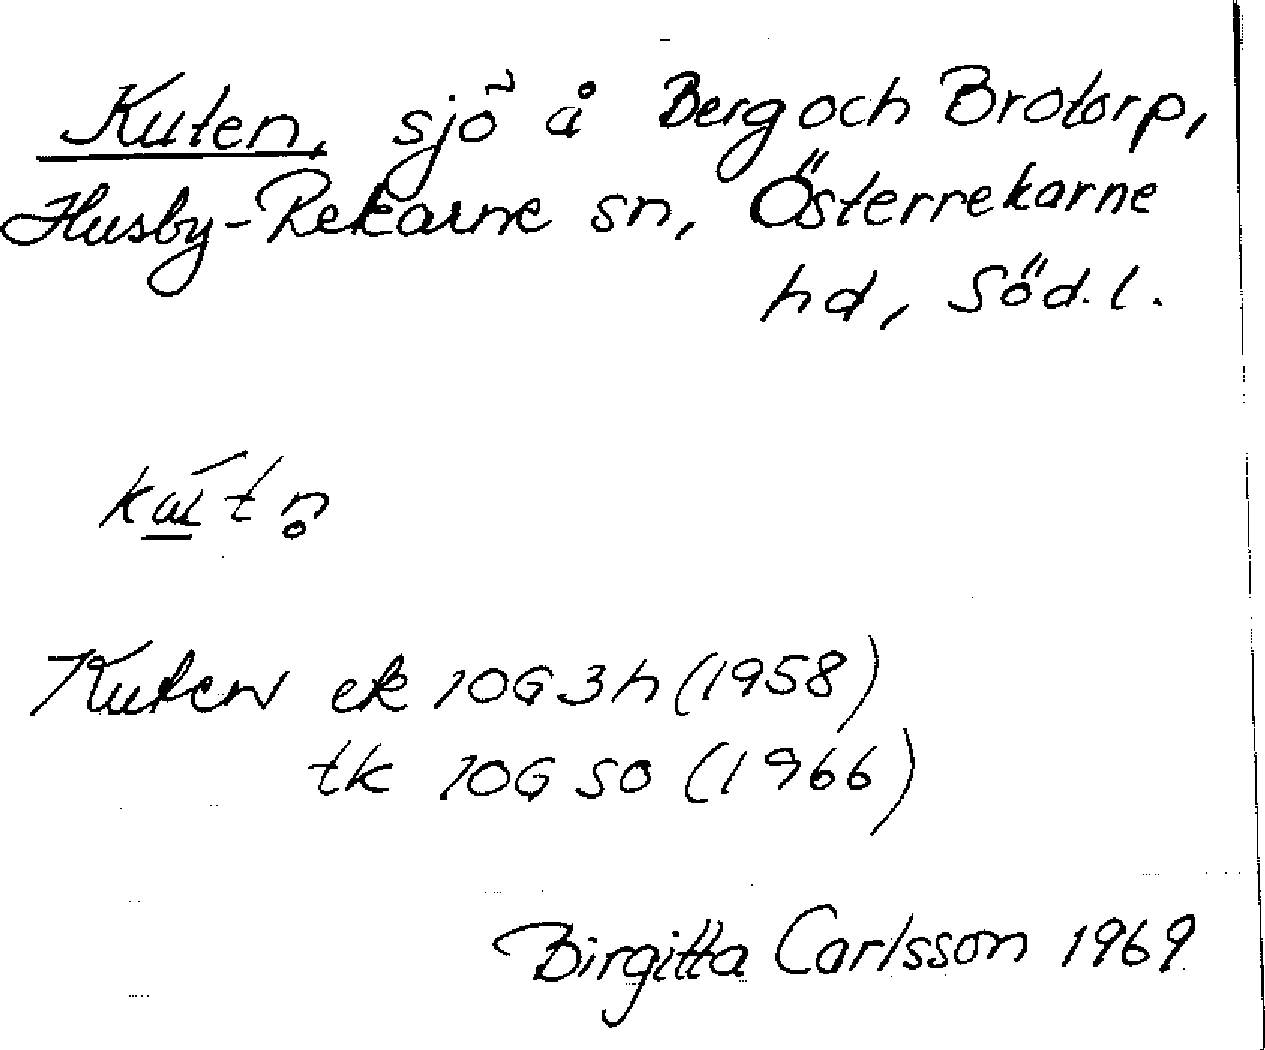 Kuten, sjö å Berg och Brotorp,
Husby-Rekarne sn, Österrekarne
hd, Söd.l.
Kuten ek 10G3h (1958)
tk 10G SO (1966)
Birgitta Carlsson 1969